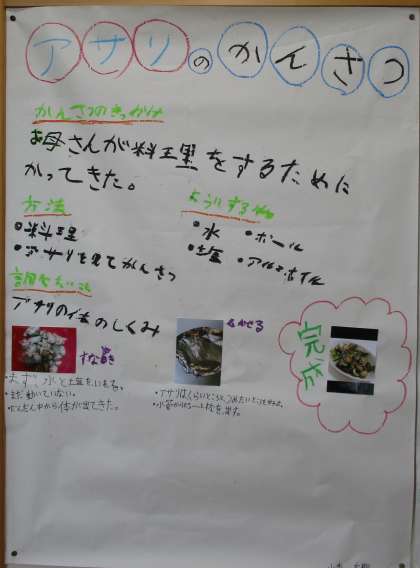 アサリのかんさつ
かんさつのきっかけ
お母さんが料理をするために
かってきた。
方法
・料理
・アサリを見てかんさつ
ようい するもの
・水 ・ボール
・塩 ・アルミホイル
調べたいこと
アサリの体のしくみ
すなぬき
・まず、水と塩をいれる。
・まだ動いていない。
・だんだん中から体が出てきた。
かぶせる
・アサリはくらいところ
完成